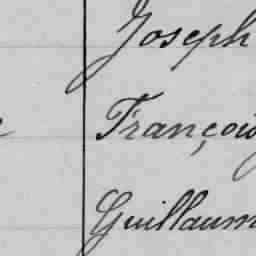 Joseph
François
Guillaum